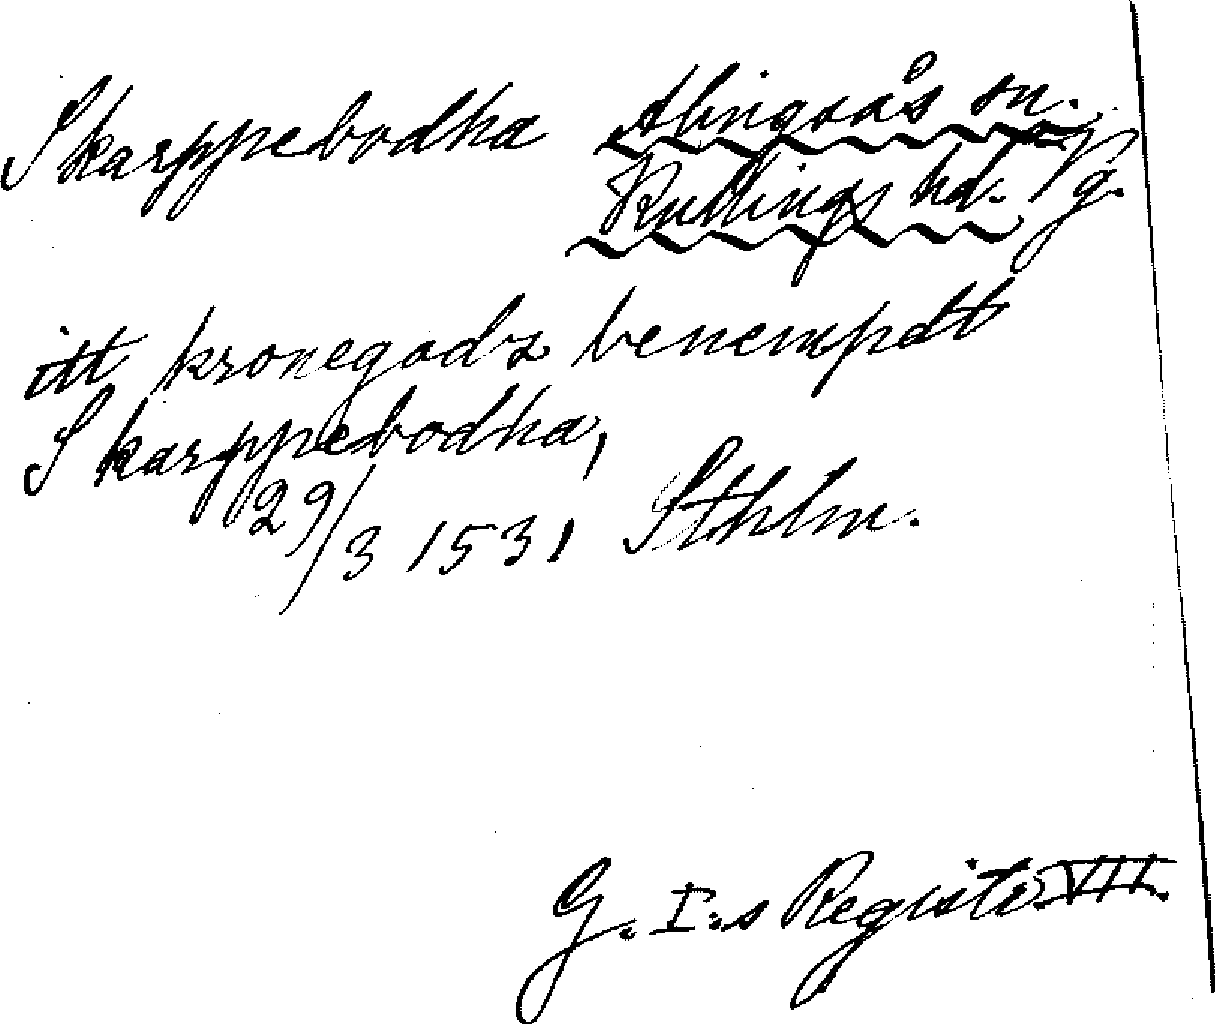 Skarppebodha Alingsås sn.
Kullings hd. Vg.
itt kronegodz benempdt
Skarppebodha,
29/3 1531 Sthlm.
G. I:s Registr. VII.